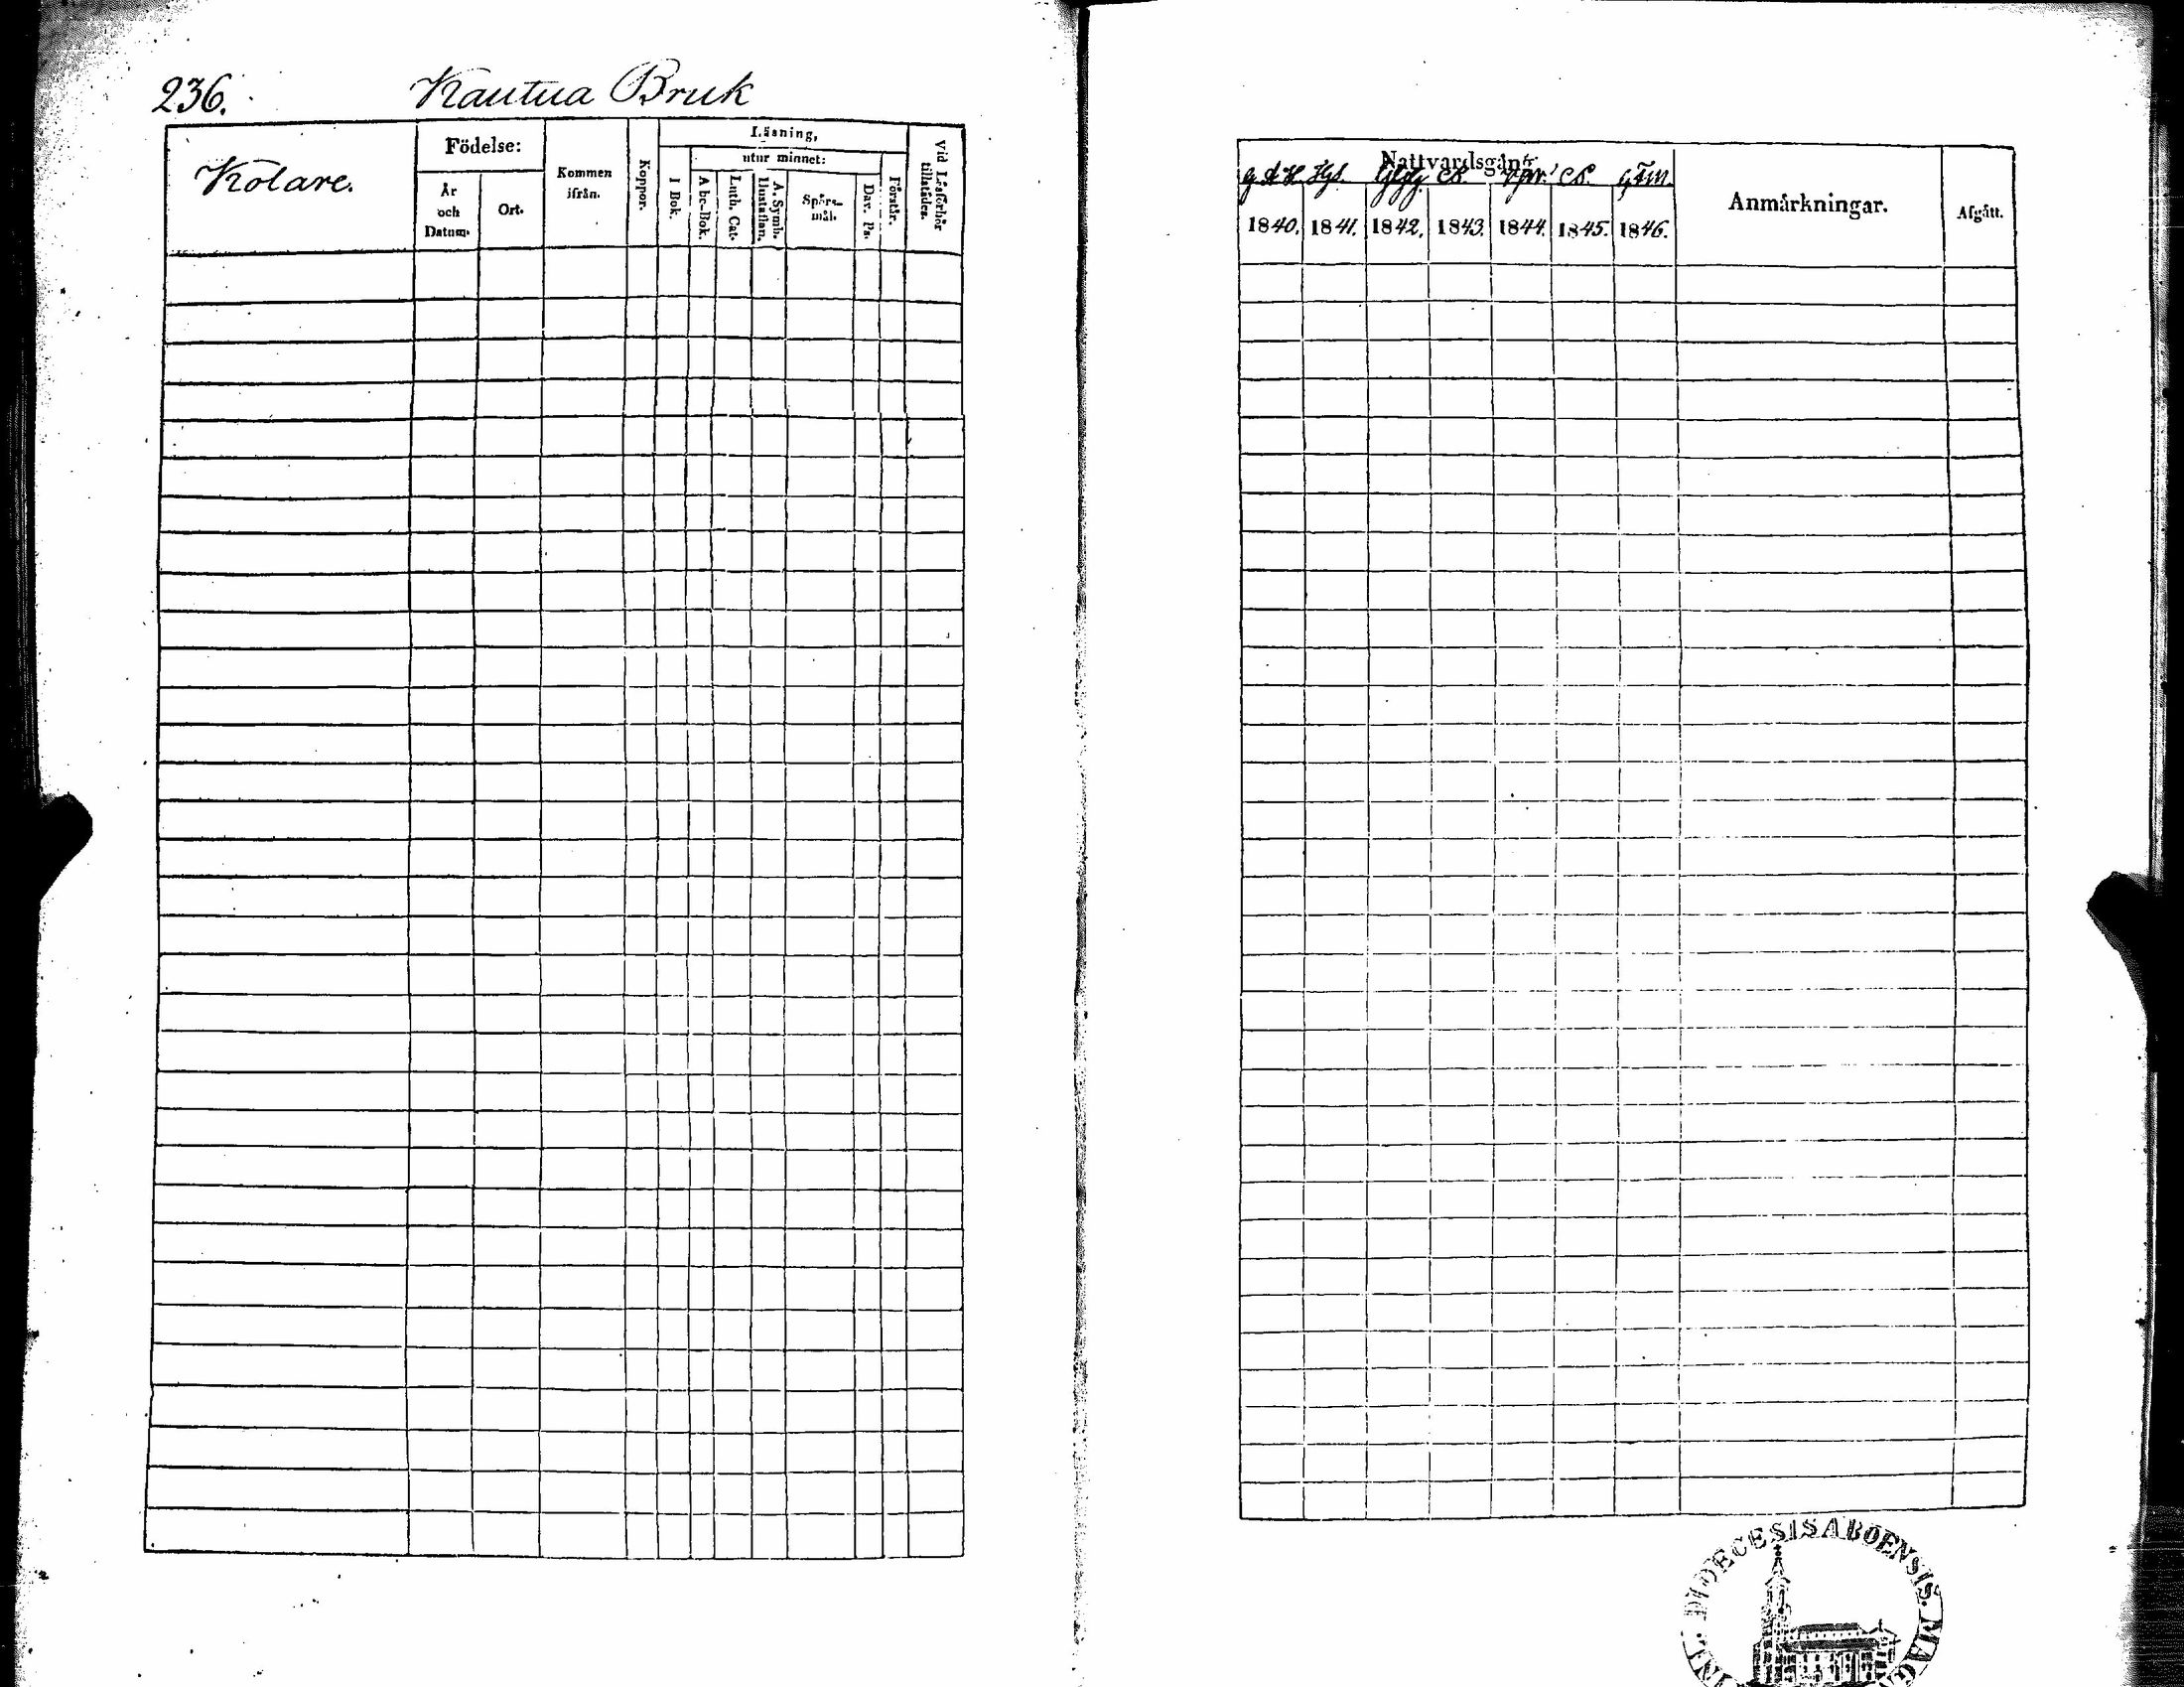 236. Kautua Bruk
Kolare.
Födelse:
År och Datum.
Ort.
Kommen ifrån.
Koppor.
Läsning,
utur minnet:
I Bok.
Abc-Bok.
Luth. Cat.
A. Symb. Hustaflan.
Spörs-mål.
Dav. Ps.
Förstår.
Vid Läsförhör tillstädes.
Nattvardsgång.
1840. 1841. 1842. 1843. 1844. 1845. 1846.
Anmärkningar.
Afgått.
DIOECESIS ABOENSIS. MAG